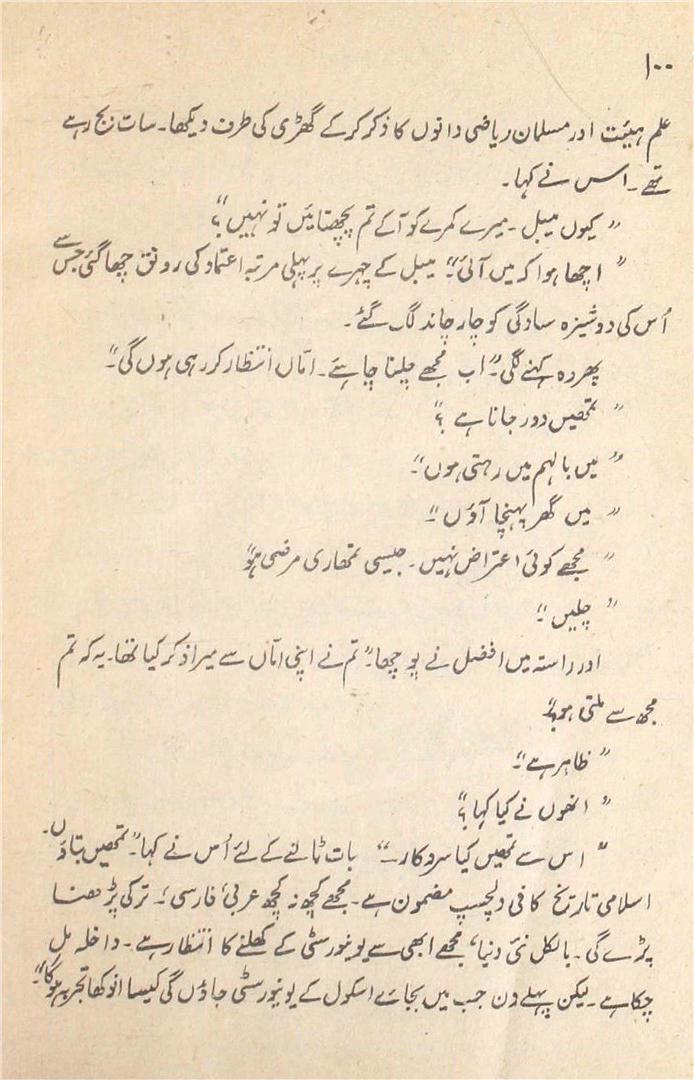 ۱۰۰
علم ہیئت اور مسلمان ریاضی دانوں کا ذکر کرکے گھڑی کی طرف دیکھا۔ سات بج رہے
تھے۔ اس نے کہا۔
”کیوں میبل۔ میرے کمرے کو آکے تم پچھتائیں تو نہیں؟“
”اچھا ہوا کہ میں آئی۔“ میبل کے چہرے پر پہلی مرتبہ اعتماد کی رونق چھا گئی جس سے
اُس کی دوشیزہ سادگی کو چار چاند لگ گئے۔
پھر وہ کہنے لگی۔ ”اب مجھے چلنا چاہئے۔ امّاں انتظار کر رہی ہوں گی۔“
”تمھیں دور جانا ہے؟“
”میں بالہم میں رہتی ہوں۔“
”میں گھر پہنچا آؤں۔“
”مجھے کوئی اعتراض نہیں۔ جیسی تمھاری مرضی ہو“
”چلیں۔“
اور راستہ میں افضل نے پوچھا۔ ”تم نے اپنی امّاں سے میرا ذکر کیا تھا۔ یہ کہ تم
مجھ سے ملتی ہو؟“
”ظاہر ہے۔“
”انھوں نے کیا کہا؟“
”اس سے تمھیں کیا سروکار۔“ بات ٹالنے کے لئے اُس نے کہا۔ ”تمھیں بتاؤں۔
اسلامی تاریخ کافی دلچسپ مضمون ہے۔ مجھے کچھ نہ کچھ عربی، فارسی، ترکی پڑھنا
پڑے گی۔ بالکل نئی دنیا، مجھے ابھی سے یونیورسٹی کے کھلنے کا انتظار ہے۔ داخلہ مل
چکا ہے۔ لیکن پہلے دن جب میں بجائے اسکول کے یونیورسٹی جاؤں گی کیسا انوکھا تجربہ ہوگا۔“